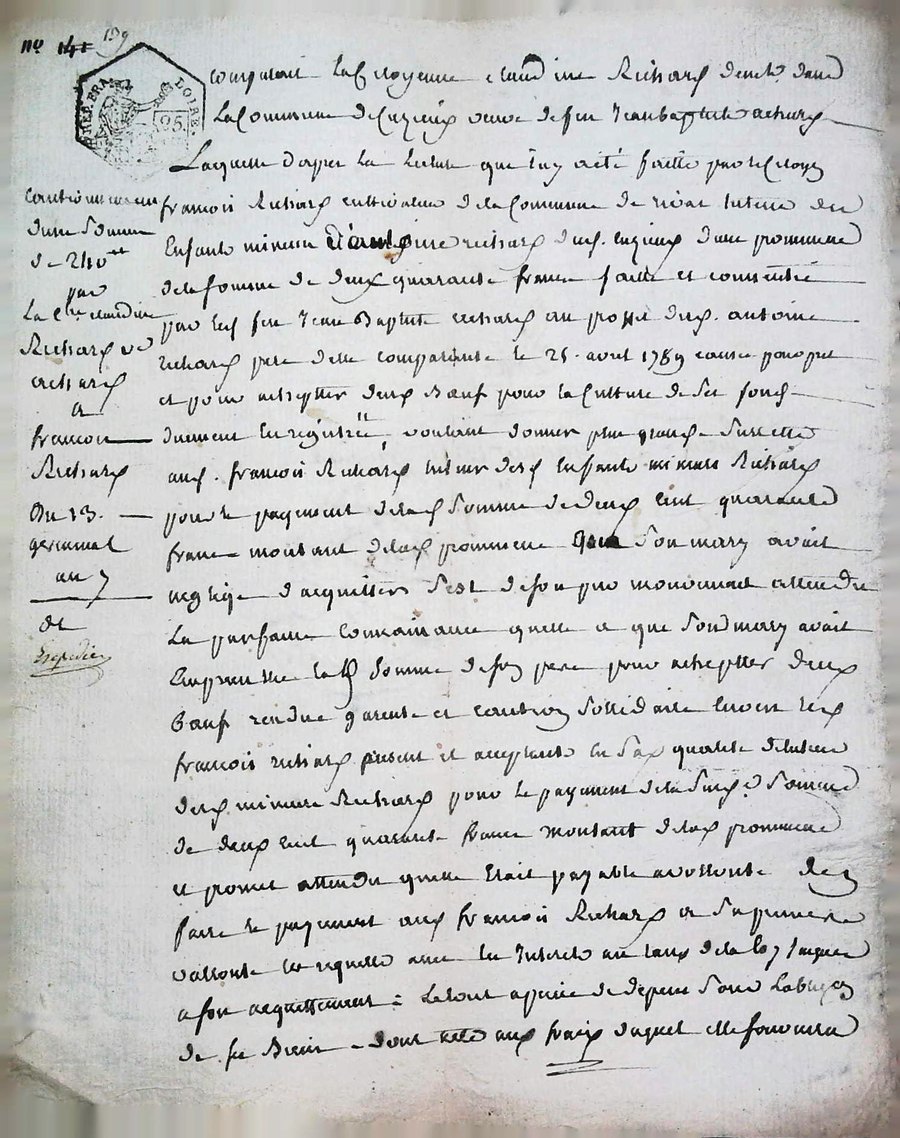 no 141
139
REP. FRA.
LOIRE.
25.
Comparait la Citoyenne claudine Richard demte dans
la Commune de Cuzieux veuve de feu Jean baptiste achard
Laquelle dapres la lecture que luy a eté faitte par le Citoyen
francois Richard cultivateur de la Commune de rivas tuteur des
Enfants mineurs d'antoine richard dud. cuzieux dune promesse
de la somme de deux quarante francs faitte et consentie
par led feu Jean Baptiste achard au profit dud. antoine
richard pere de la comparante le 25. avril 1789 cause pour pret
et pour achepter deux Bœuf pour la Culture de ses fonds
duement Enregistrée, voulant donner plus grande surette
aud. francois Richard tuteur desd Enfants mineurs Richard
pour le payement de lad somme de deux cent quarante
francs montant de lad promesse que son mary avait
negligé d'acquitter s'est de son pur mouvement attendu
la parfaite connaissance quelle a que sond mary avait
Emprunté lad somme de son pere pour achepter deux
bœuf rendue garente et caution sollidaire envers led
francois richard present et acceptant en sa qualité de tuteur
desd mineurs Richard pour le payement de la susd. somme
de deux cent quarante francs montant de lad promesse
et promet attendu quelle était payable a vollonté den
faire le payement aud francois Richard a sa premiere
vollonté et requette avec les Interets au taux de la loy jusques
a son acquittement : Le tout a peine de depens sous Lobligon
de ses Biens - dont acte aux frais duquel elle fournira
Cautionnement
dune somme
de 240 ##
par
La Cne claudine
Richard ve
achard
a
francois
Richard
Du 13.
germinal
an 7
Expedié